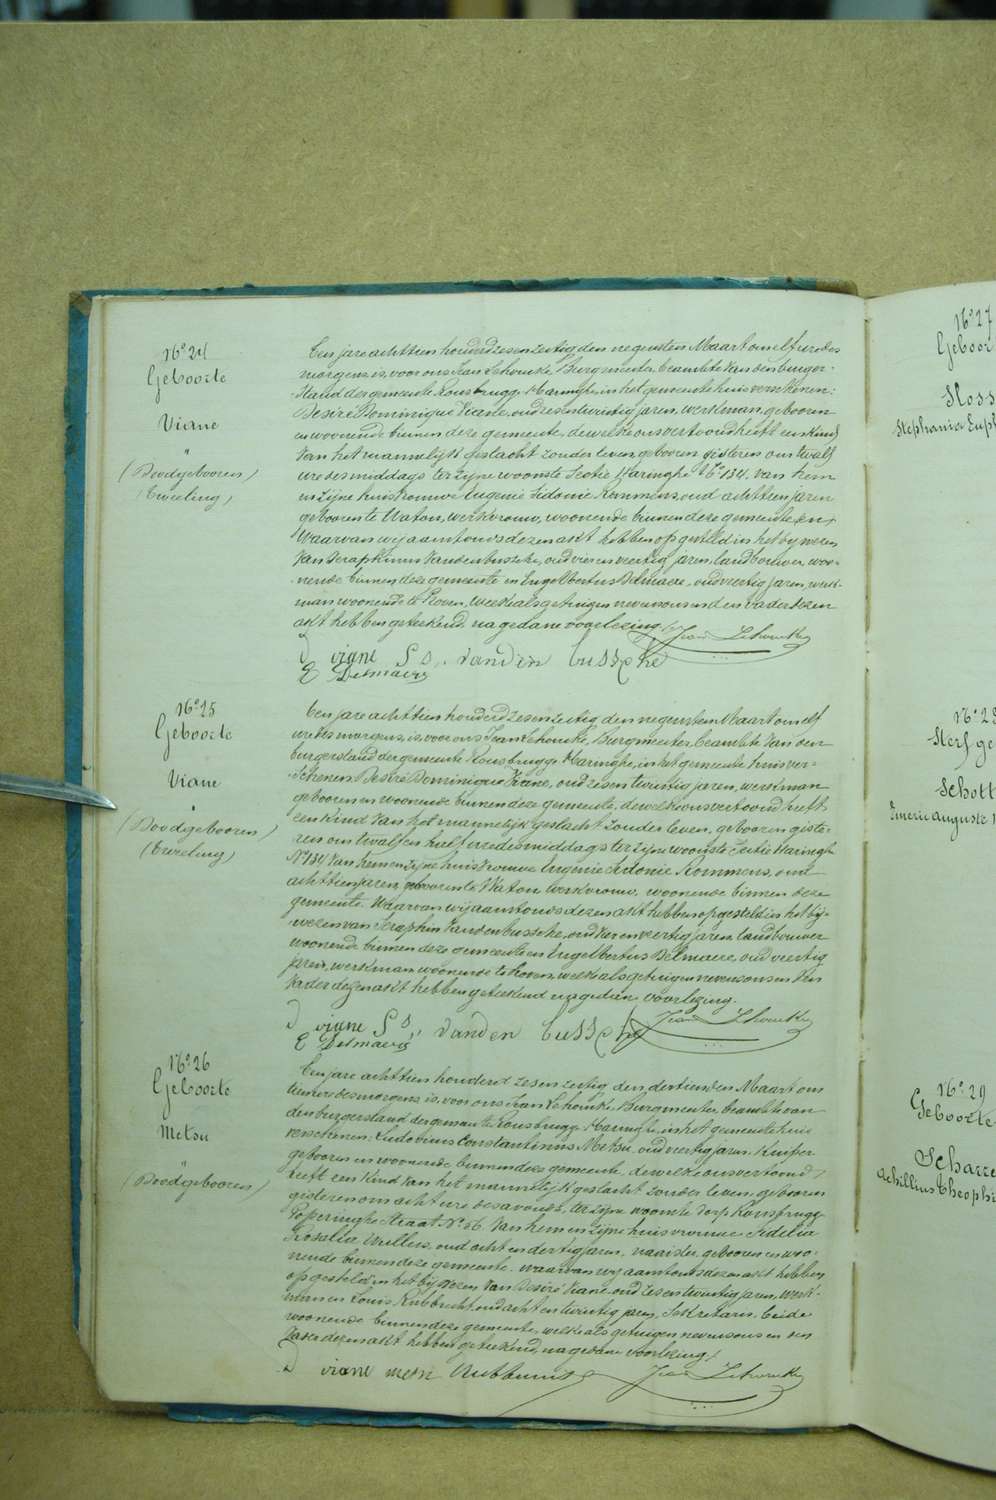 N° 24
Geboorte
Viane
"
(Doodgebooren)
(Tweeling)
Een jare achttien honderd zesenzestig den negensten Maart om elf ure des
morgens, is, voor ons Jean Lehoucke, Burgmeester, beambte van den burger-
stand der gemeente Rousbrugge Haringhe, in het gemeente huis verschenen:
Desiré Dominique Viane, oud zesentwintig jaren, werkman, gebooren
en woonende binnen deze gemeente, dewelke ons vertoond heeft een kind
van het mannelijk geslacht zonder leven, gebooren gisteren om twalf
ure des middags ter zijne woonste Sectie Haringhe N° 134, van hem
en zijne huisvrouwe Eugenie Sidonie Rommens, oud achttien jaren
gebooren te Watou, werkvrouw, woonende binnen deze gemeente
Waarvan wij aamtonds dezen akt hebben opgesteld in het bijwezen
van Seraphinus Vandenbussche, oud vier en veertig jaren, landbouwer, woo-
nende binnen deze gemeente en Engelbertus Delmaere, oud veertig jaren, werk-
man woonende te Proven, welke als getuigen nevens ons en den vader dezen
akt hebben geteekend, na gedane voorlezing.
Jean Lehoucke
D viane S D, vanden bussche
E Delmaere
N° 25
Geboorte
Viane
"
(Doodgebooren)
(Tweeling)
Een jare achttien honderd zesenzestig den negensten Maart om elf
ure des morgens, is, voor ons Jean Lehoucke, Burgmeester, beambte van den
burgerstand der gemeente Rousbrugge Haringhe, in het gemeente huis ver-
schenen: Desiré Dominique Viane, oud zesentwintig jaren, werkman
gebooren en woonende binnen deze gemeente, dewelke ons vertoond heeft
een kind van het mannelijk geslacht zonder leven, gebooren giste-
ren om twalf en half ure des middags ter zijne woonste Sectie Haringhe
N° 134 van hem en zijne huisvrouwe Eugenie Sidonie Rommens, oud
achttien jaren, gebooren te Watou werkvrouw, woonende binnen deze
gemeente. Waarvan wij aamtonds dezen akt hebben opgesteld in het bij-
wezen van Seraphin Vandenbussche, oud vier en veertig jaren, landbouwer
woonende binnen deze gemeente en Engelbertus Delmaere, oud veertig
jaren, werkman woonende te Proven, welke als getuigen nevens ons en den
Vader dezen akt hebben geteekend na gedane voorlezing.
Jean Lehoucke
D viane S D, vanden bussche
E Delmaere
N° 26
Geboorte
Metsu
"
(Doodgebooren)
Een jare achttien honderd zesenzestig den dertienden Maart om
tien ure des morgens, is, voor ons Jean Lehoucke, Burgmeester, beambte van
den burgerstand der gemeente Rousbrugge Haringhe, in het gemeente huis
verschenen: Ludovicus Constantinus Metsu, oud veertig jaren, Kuiper
gebooren en woonende binnen deze gemeente, dewelke ons vertoond
heeft een kind van het mannelijk geslacht zonder leven, gebooren
gisteren om acht ure des avonds, ter zijne woonste dorp Rousbrugge
Poperinghe Straat N° 56 van hem en zijne huisvrouwe Fidelia
Rosalia Willers, oud acht en dertig jaren, naaister, gebooren en woo-
nende binnen deze gemeente. waarvan wij aamtonds dezen akt hebben
opgesteld in het bij wezen van Desiré Viane, oud zes en twintig jaren, werk-
man en Louis Rubbrecht, oud acht en twintig jaren, Sekretaris, beide
woonende binnen deze gemeente, welke als getuigen nevens ons en den
Vader dezen akt hebben geteekend, na gedane voorlezing.
D viane metsu Jean Lehoucke
N° 27
N° 29